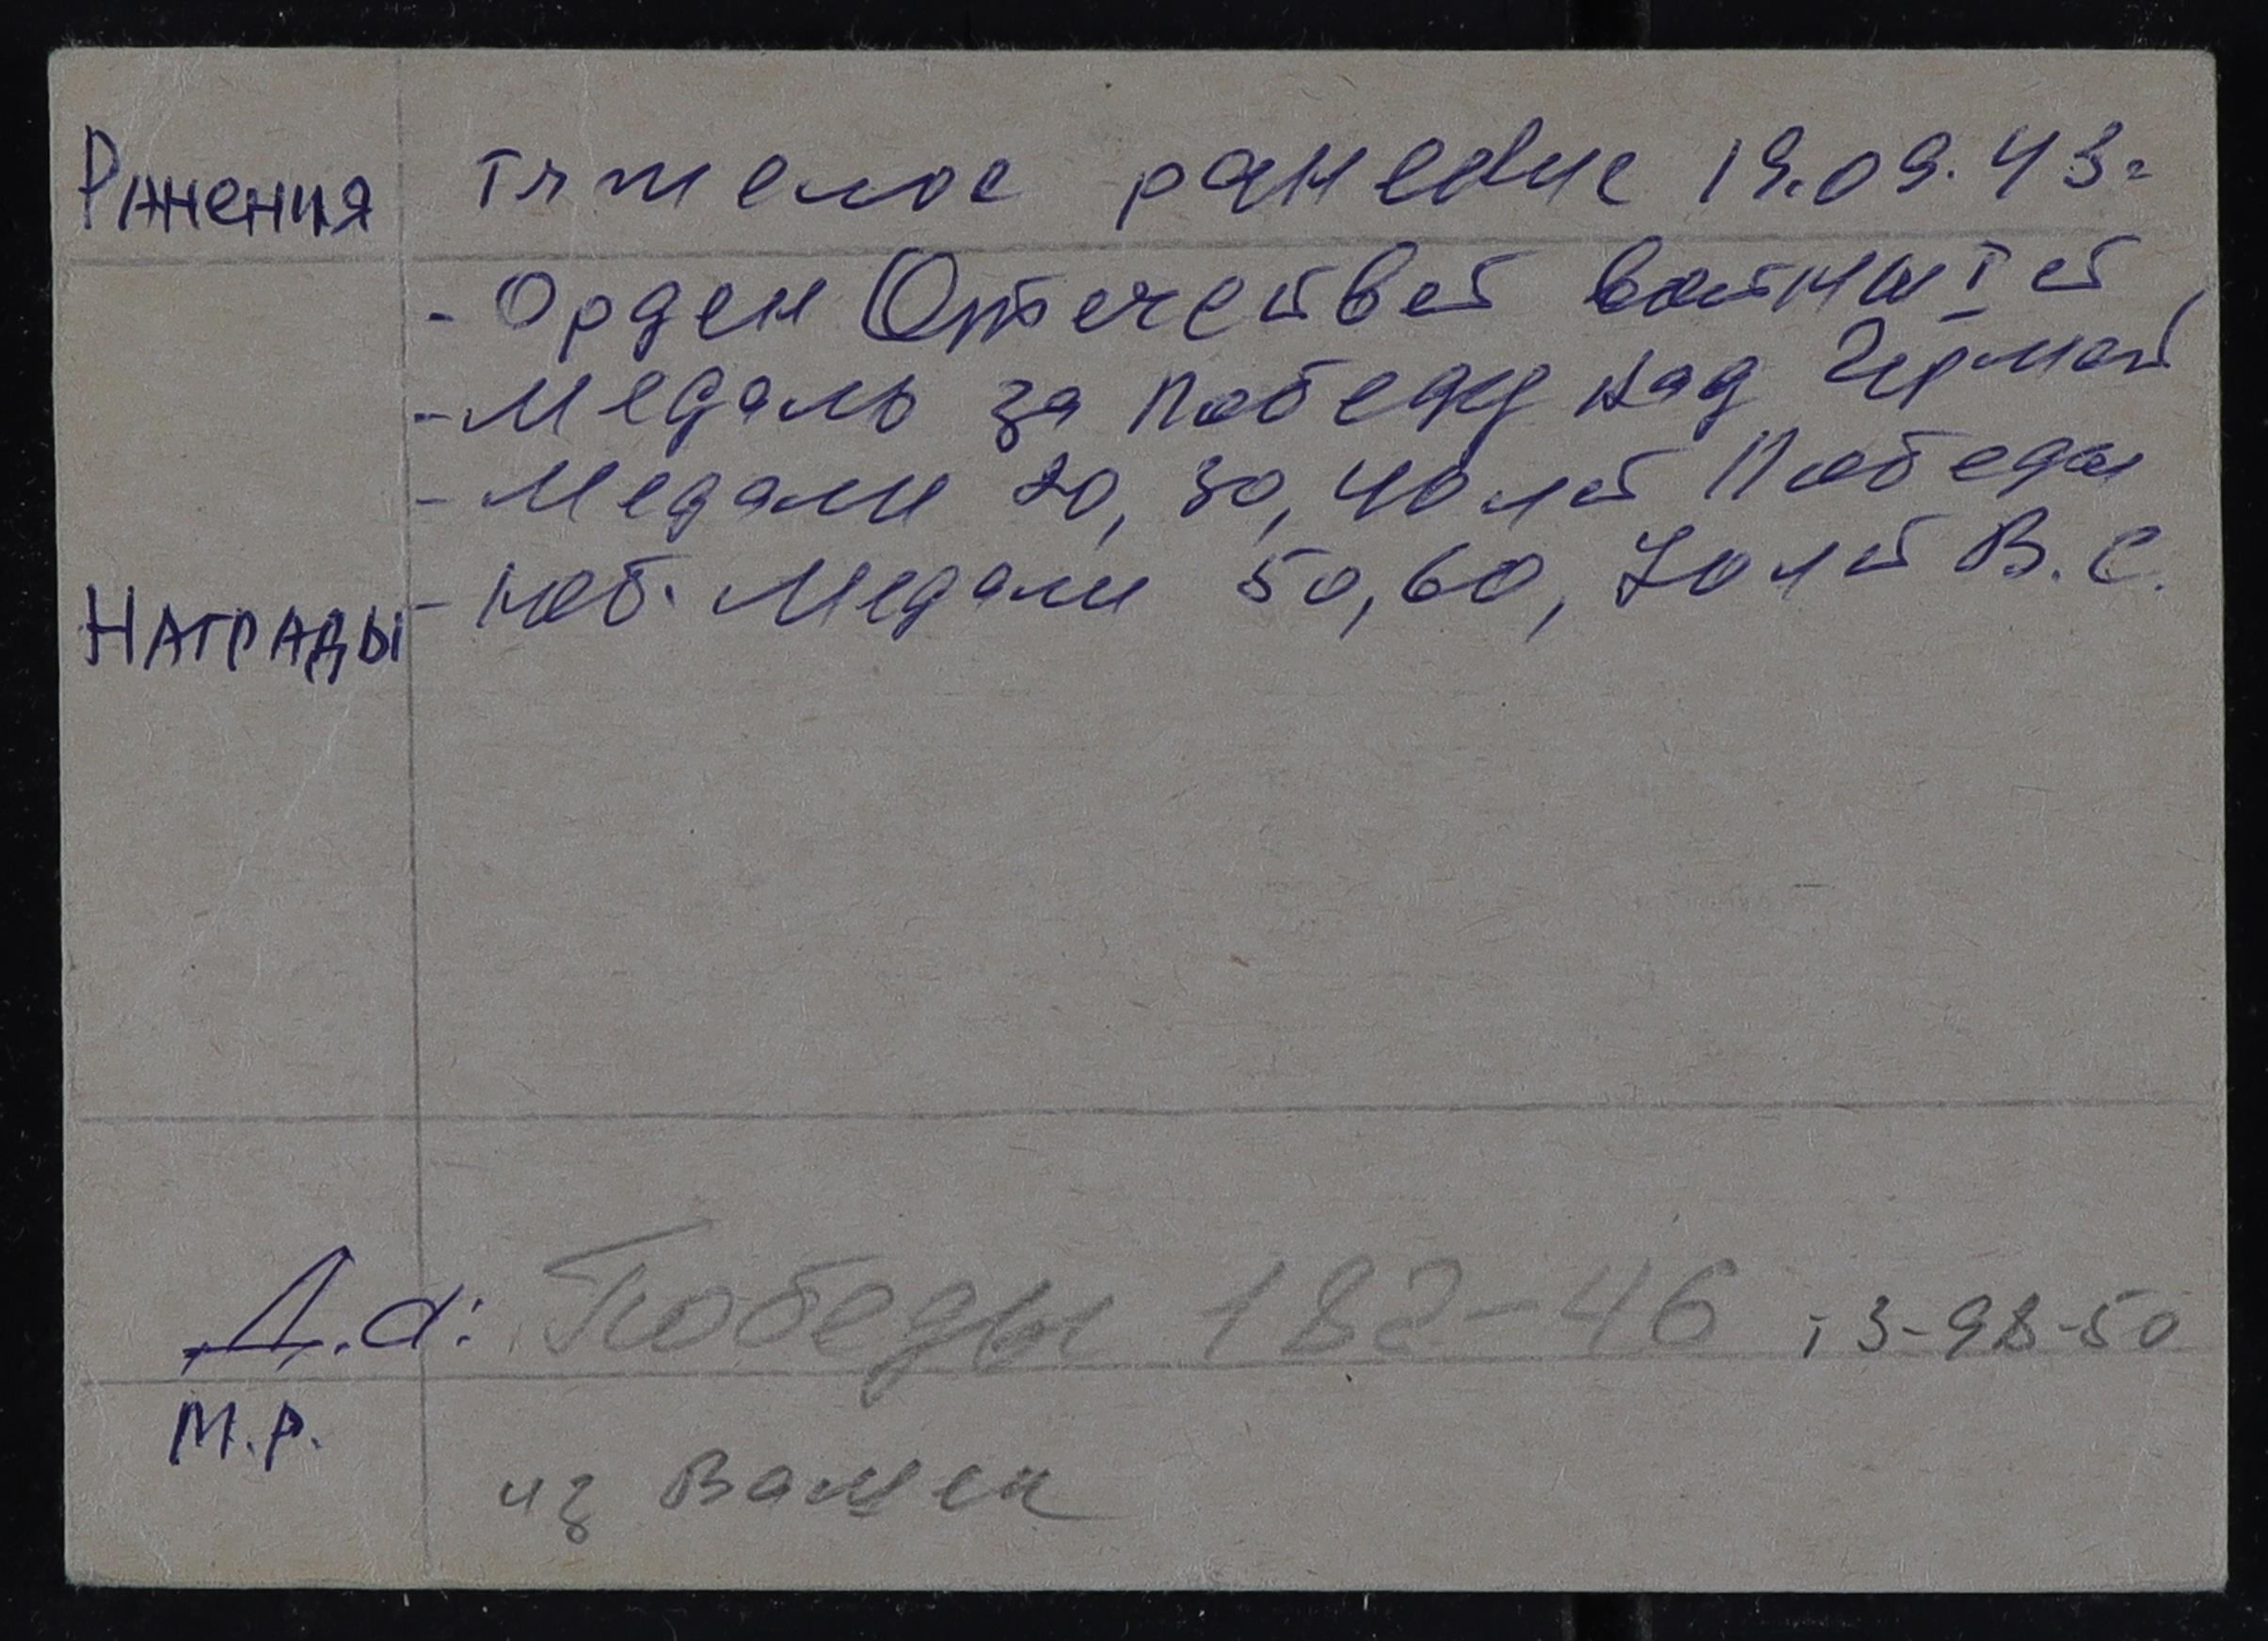 Ранения тяжелое ранение 19.09.43г
- Орден Отечествет войны I ст,
- Медаль за победу над Герман
- Медали 20, 30, 40 лет Победы
Награды - юб. медали 50, 60, 70 лет В.С.
Д.а: Победы 182-46 т 3-98-50
М.Р.
из